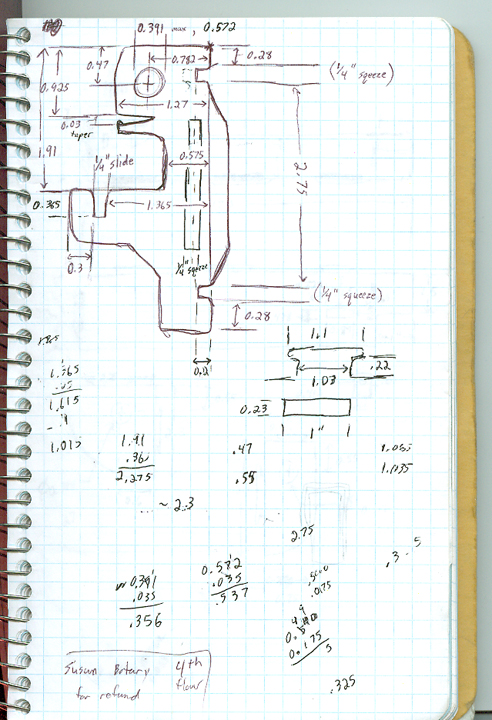 0.391 max, 0.572
0.47
0.782
0.28
(1/4" squeeze)
0.925
1.27
0.03
taper
1.91
1/4" slide
0.575
2.75
0.365
1.365
0.3
1/4" squeeze
(1/4" squeeze)
0.28
0.2
1.1
.22
1.03
0.23
1"
1.365
1.615
1.015
1.91
.365
2,275
.47
.55
1.035
~ 2.3
2.75
.3
5
0.391
.035
.356
0.572
.035
.537
.0175
0.175
.325
Susan
4th
floor
for refund